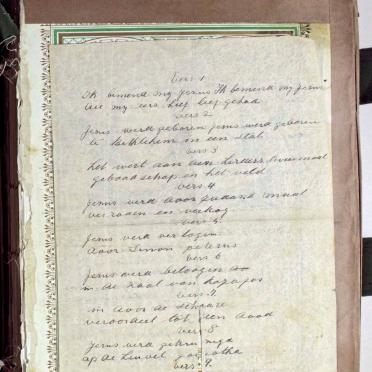 vers 1
Ik bemend my Jesus Ik bemend my Jesus
die my eers lief lief gehad
vers 2
Jesus werd geboren Jesus werd geboren
te Bethlehem in een stal
vers 3
het wert aan een herders
geboodschap in het veld
vers 4
Jesus werd door Judaas
verraden en verkog
vers 5
Jesus werd verlogen
door Simon peterus
vers 6
Jesus werd beloogen
in de zaal van
vers 7
en door de schrare
veroordeelt tot den dood
vers 8
Jesus werd
op de heuvel
vers 9